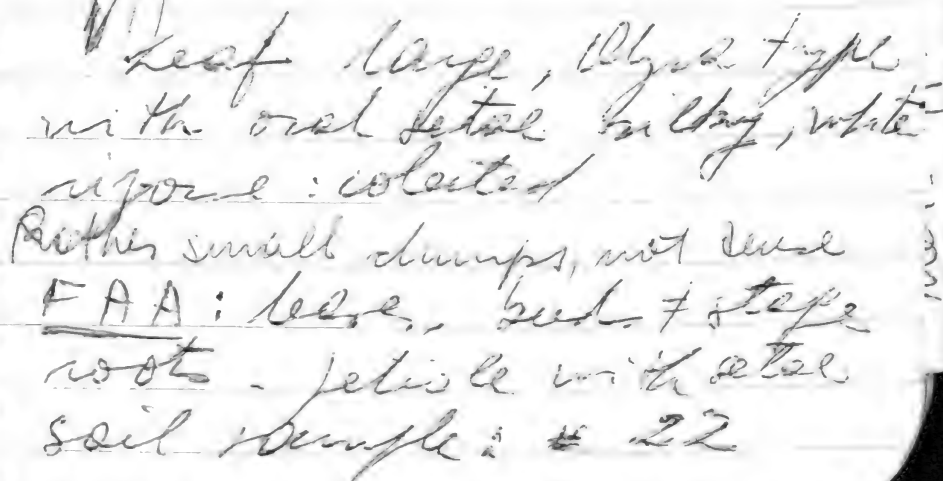 Leaf large, type
with oral setae bilby, white
vigorous: colected
Rather small clumps, not dense
FAA: base, bud + stage
roots - petiole with setae
soil sample: # 22